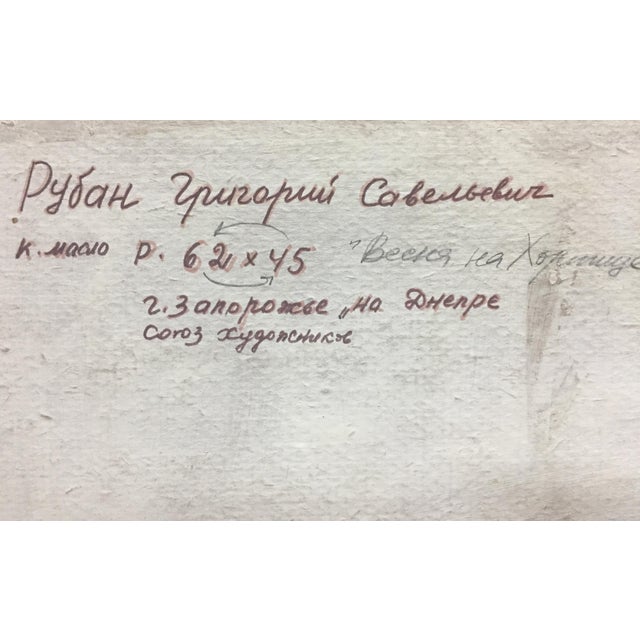 Рубан Григорий Савельевич
к. масло р. 62 х 45 "Весна на Хортице
г. Запорожье „на Днепре
союз художников